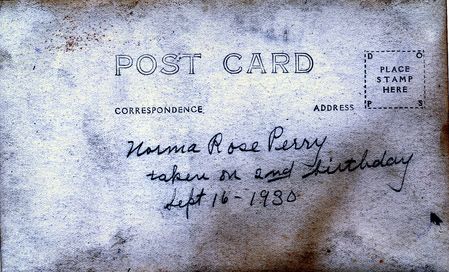 POST CARD
D O
PLACE
STAMP
HERE
P S
CORRESPONDENCE ADDRESS
Norma Rose Perry
taken on 2nd birthday
Sept 16 - 1930